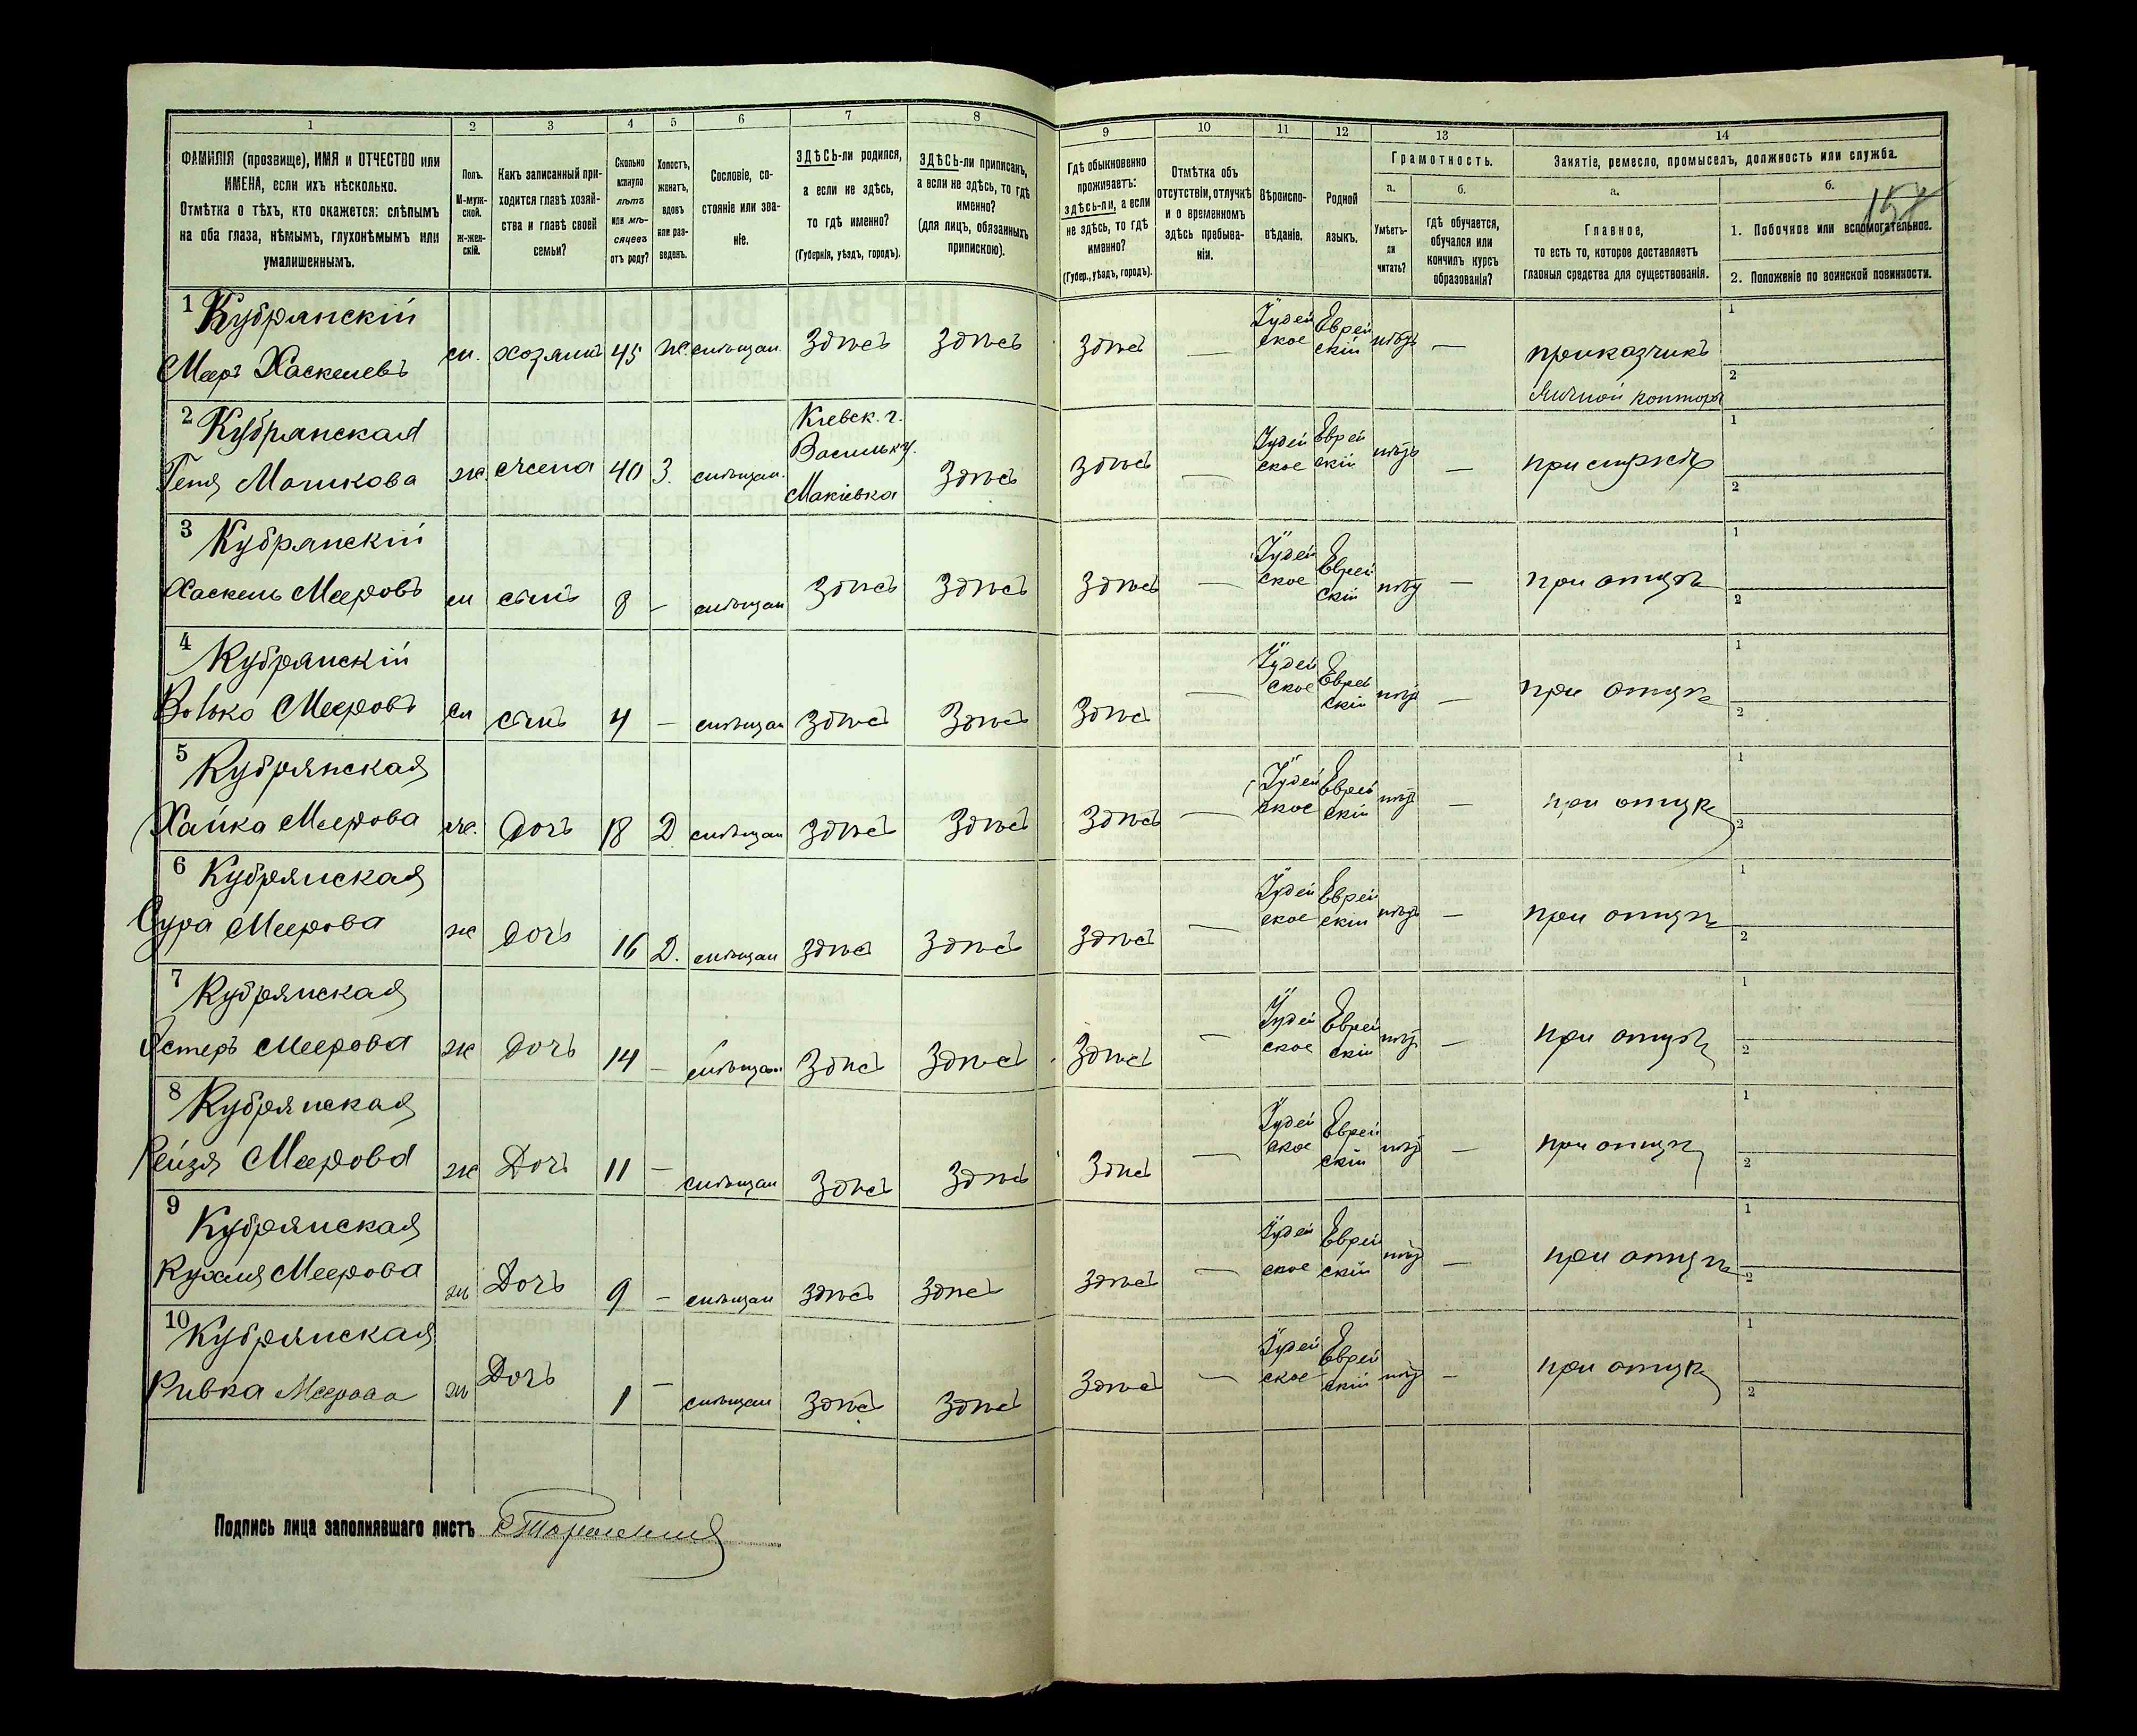 158
1 2 3 4 5 6 7 8 9 10 11 12 13 14
ФАМИЛІЯ (прозвище), ИМЯ и ОТЧЕСТВО или
ИМЕНА, если ихъ нѣсколько.
Отмѣтка о тѣхъ, кто окажется: слѣпымъ
на оба глаза, нѣмымъ, глухонѣмымъ или
умалишеннымъ.
Полъ.
М-муж-
ской.
Ж-жен-
скій.
Какъ записанный при-
ходится главѣ хозяй-
ства и главѣ своей
семьи?
Сколько
минуло
лѣтъ
или мѣ-
сяцевъ
отъ роду?
Холостъ,
женатъ,
вдовъ
или раз-
веденъ.
Сословіе, со-
стояніе или зва-
ніе.
ЗДѢСЬ-ли родился,
а если не здѣсь,
то гдѣ именно?
(Губернія, уѣздъ, городъ).
ЗДѢСЬ-ли приписанъ,
а если не здѣсь, то гдѣ
именно?
(для лицъ, обязанныхъ
припискою).
Гдѣ обыкновенно
проживаетъ:
здѣсь-ли, а если
не здѣсь, то гдѣ
именно?
(Губер., уѣздъ, городъ).
Отмѣтка объ
отсутствіи, отлучкѣ
и о временномъ
здѣсь пребыва-
ніи.
Вѣроиспо-
вѣданіе.
Родной
языкъ.
Грамотность.
а.
Умѣетъ-
ли
читать?
б.
гдѣ обучается,
обучался или
кончилъ курсъ
образованія?
Занятіе, ремесло, промыселъ, должность или служба.
а.
Главное,
то есть то, которое доставляетъ
главныя средства для существованія.
б.
1. Побочное или вспомогательное.
2. Положеніе по воинской повинности.
1 Кубрянскій
Мееръ Хаскелевъ м. хозяинъ 45 ж. мѣщан. Здѣсь Здѣсь Здѣсь — Іудей Еврей нѣтъ — приказчикъ 1
ское скій Яичной конторы 2
2 Кубрянская Кіевск. г.
Васильк. у.
Геня Мошкова ж. жена 40 З. мѣщан. Макіевка Здѣсь Здѣсь — Іудей Еврей нѣтъ — при мужѣ 1
ское скій 2
3 Кубрянскій
Хаскель Мееровъ м сынъ 8 — мѣщан Здѣсь Здѣсь Здѣсь — Іудей Еврей нѣт — при отцѣ 1
ское скій 2
4 Кубрянскій
Волько Мееровъ м сынъ 4 — мѣщан Здѣсь Здѣсь Здѣсь — Іудей Еврей нѣт — при отцѣ 1
ское скій 2
5 Кубрянская
Хайка Меерова ж. Дочь 18 Д. мѣщан Здѣсь Здѣсь Здѣсь — Іудей Еврей нѣт — при отцѣ 1
ское скій 2
6 Кубрянская
Сура Меерова ж Дочь 16 Д. мѣщан Здѣсь Здѣсь Здѣсь — Іудей Еврей нѣт — при отцѣ 1
ское скій 2
7 Кубрянская
Эстеръ Меерова ж Дочь 14 — мѣщан Здѣсь Здѣсь Здѣсь — Іудей Еврей нѣт — при отцѣ 1
ское скій 2
8 Кубрянская
Рейзя Меерова ж Дочь 11 — мѣщан Здѣсь Здѣсь Здѣсь — Іудей Еврей нѣт — при отцѣ 1
ское скій 2
9 Кубрянская
Рухля Меерова ж Дочь 9 — мѣщан Здѣсь Здѣсь Здѣсь — Іудей Еврей нѣт — при отцѣ 1
ское скій 2
10 Кубрянская
Ривка Меерова ж Дочь 1 — мѣщан Здѣсь Здѣсь Здѣсь — Іудей Еврей нѣт — при отцѣ 1
ское скій 2
Подпись лица заполнявшаго листъ